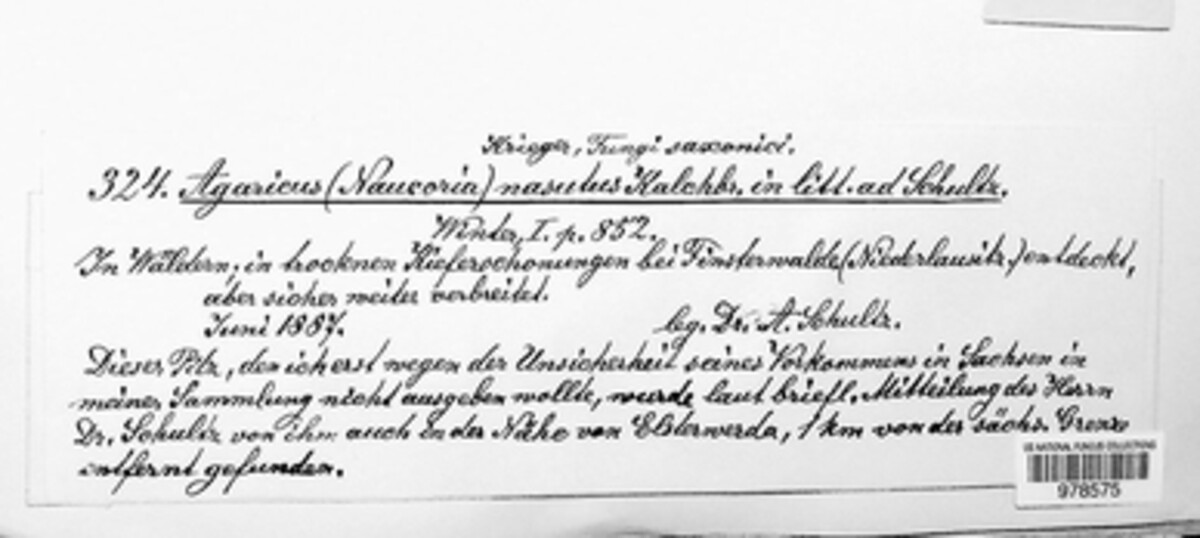 Krieger, Fungi saxonici.
324. Agaricus (Naucoria) nasutus Kalchbr. in litt. ad Schultz.
Winter, I. p. 852.
In Wäldern, in trocknen Kieferschonungen bei Finsterwalde (Niederlausitz.) entdeckt,
aber sicher weiter verbreitet.
Juni 1887.
leg. Dr. A. Schultz.
Dieser Pilz, den ich erst wegen der Unsicherheit seines Vorkommens in Sachsen in
meiner Sammlung nicht ausgeben wollte, wurde laut briefl. Mitteilung des Herrn
Dr. Schultz von ihm auch in der Nähe von Elsterwerda, 1 km von der sächs. Grenze
entfernt gefunden.
US NATIONAL FUNGUS COLLECTIONS
978575